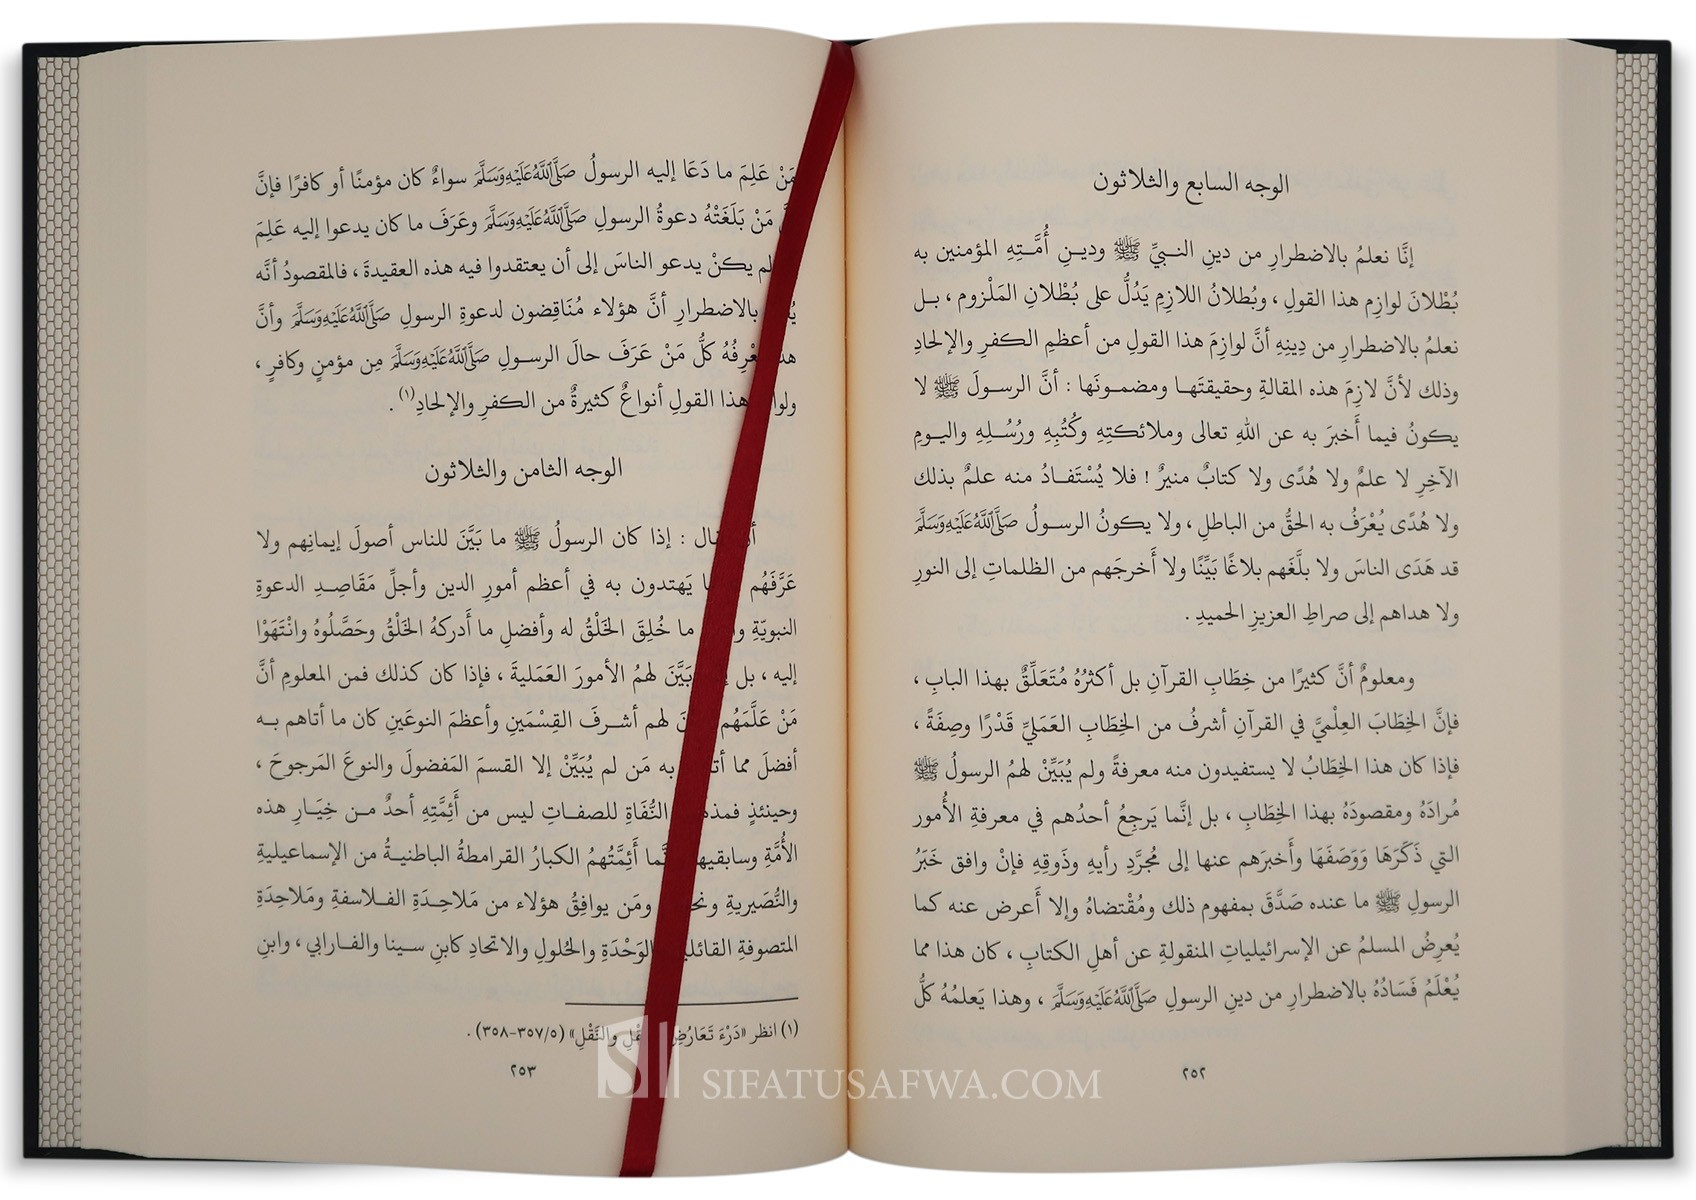 الوجه السابع والثلاثون
إنَّا نعلمُ بالاضطرارِ من دينِ النبيِّ ﷺ ودينِ أُمَّتِهِ المؤمنين به
بُطْلانَ لوازِمِ هذا القولِ ، وبُطلانُ اللازِمِ يَدُلُّ على بُطْلانِ المَلْزوم ، بل
نعلمُ بالاضطرارِ من دِينِهِ أنَّ لوازِمَ هذا القولِ من أعظمِ الكفرِ والإلحادِ
وذلك لأنَّ لازِمَ هذه المقالةِ وحقيقتَها ومضمونَها : أنَّ الرسولَ ﷺ لا
يكونُ فيما أَخبرَ به عن اللهِ تعالى وملائكتِهِ وكُتُبِهِ ورُسُلِهِ واليومِ
الآخِرِ لا علمٌ ولا هُدًى ولا كتابٌ منيرٌ ! فلا يُسْتَفادُ منه علمٌ بذلك
ولا هُدًى يُعْرَفُ به الحقُّ من الباطلِ ، ولا يكونُ الرسولُ صَلَّى اللَّهُ عَلَيْهِ وَسَلَّمَ
قد هَدَى الناسَ ولا بلَّغَهم بلاغًا بَيِّنًا ولا أَخرجَهم من الظلماتِ إلى النورِ
ولا هداهم إلى صراطِ العزيزِ الحميدِ .
ومعلومٌ أنَّ كثيرًا من خِطَابِ القرآنِ بل أكثرُهُ مُتَعَلِّقٌ بهذا البابِ ،
فإنَّ الخِطَابَ العِلْميَّ في القرآنِ أشرفُ من الخِطَابِ العَمَليِّ قَدْرًا وصِفَةً ،
فإذا كان هذا الخِطَابُ لا يستفيدون منه معرفةً ولم يُبَيِّنْ لهمُ الرسولُ ﷺ
مُرادَهُ ومقصودَهُ بهذا الخِطَابِ ، بل إنَّما يَرجِعُ أحدُهم في معرفةِ الأُمور
التي ذَكَرَهَا وَوَصَفَهَا وأَخبرَهم عنها إلى مُجرَّدِ رأيهِ وذَوقِهِ فإنْ وافق خَبَرُ
الرسولِ ﷺ ما عنده صَدَّقَ بمفهوم ذلك ومُقْتضاهُ وإلا أَعرض عنه كما
يُعرِضُ المسلمُ عن الإسرائيلياتِ المنقولةِ عن أهلِ الكتابِ ، كان هذا مما
يُعْلَمُ فَسَادُهُ بالاضطرارِ من دينِ الرسولِ صَلَّى اللَّهُ عَلَيْهِ وَسَلَّمَ ، وهذا يَعلمُهُ كلُّ
٢٥٢
مَنْ عَلِمَ ما دَعَا إليه الرسولُ صَلَّى اللَّهُ عَلَيْهِ وَسَلَّمَ سواءٌ كان مؤمنًا أو كافرًا فإنَّ
مَنْ بَلَغَتْهُ دعوةُ الرسولِ صَلَّى اللَّهُ عَلَيْهِ وَسَلَّمَ وعَرَفَ ما كان يدعوا إليه عَلِمَ
لم يكنْ يدعو الناسَ إلى أن يعتقدوا فيه هذه العقيدةَ ، فالمقصودُ أنَّه
بالاضطرارِ أنَّ هؤلاء مُنَاقِضون لدعوةِ الرسولِ صَلَّى اللَّهُ عَلَيْهِ وَسَلَّمَ وأنَّ
كلُّ مَنْ عَرَفَ حالَ الرسولِ صَلَّى اللَّهُ عَلَيْهِ وَسَلَّمَ مِن مؤمنٍ وكافرٍ ،
هذا القولِ أنواعٌ كثيرةٌ من الكفرِ والإلحادِ(١) .
الوجه الثامن والثلاثون
: إذا كان الرسولُ ﷺ ما بَيَّنَ للناس أصولَ إيمانِهم ولا
عَرَّفَهُم يَهتدون به في أعظم أمورِ الدين وأجلِّ مَقَاصِدِ الدعوةِ
النبويّةِ ما خُلِقَ الخَلْقُ له وأفضلِ ما أَدركهُ الخَلْقُ وحَصَّلُوهُ وانْتَهَوْا
إليه ، بل بَيَّنَ لهمُ الأمورَ العَمَليةَ ، فإذا كان كذلك فمن المعلومِ أنَّ
مَنْ عَلَّمَهُم لهم أشرفَ القِسْمَينِ وأعظمَ النوعَينِ كان ما أتاهم به
أفضلَ مما به مَن لم يُبَيِّنْ إلا القسمَ المَفضولَ والنوعَ المَرجوحَ ،
وحينئذٍ النُّفَاةِ للصفاتِ ليس من أَئِمَّتِهِ أحدٌ من خِيَارِ هذه
الأُمَّةِ وسابقيها أَئِمَّتُهُمُ الكبارُ القرامطةُ الباطنيةُ من الإسماعيليةِ
والنُّصَيريةِ ومَن يوافِقُ هؤلاء من مَلاحِدَةِ الفلاسفةِ ومَلاحِدَةِ
المتصوفةِ الوَحْدَةِ والحُلولِ والاتحادِ كابنِ سينا والفارابي ، وابنِ
(١) انظر «دَرْءَ تَعَارُضِ والنَّقْلِ» (٥/٣٥٧-٣٥٨) .
٢٥٣
SIFATUSAFWA.COM